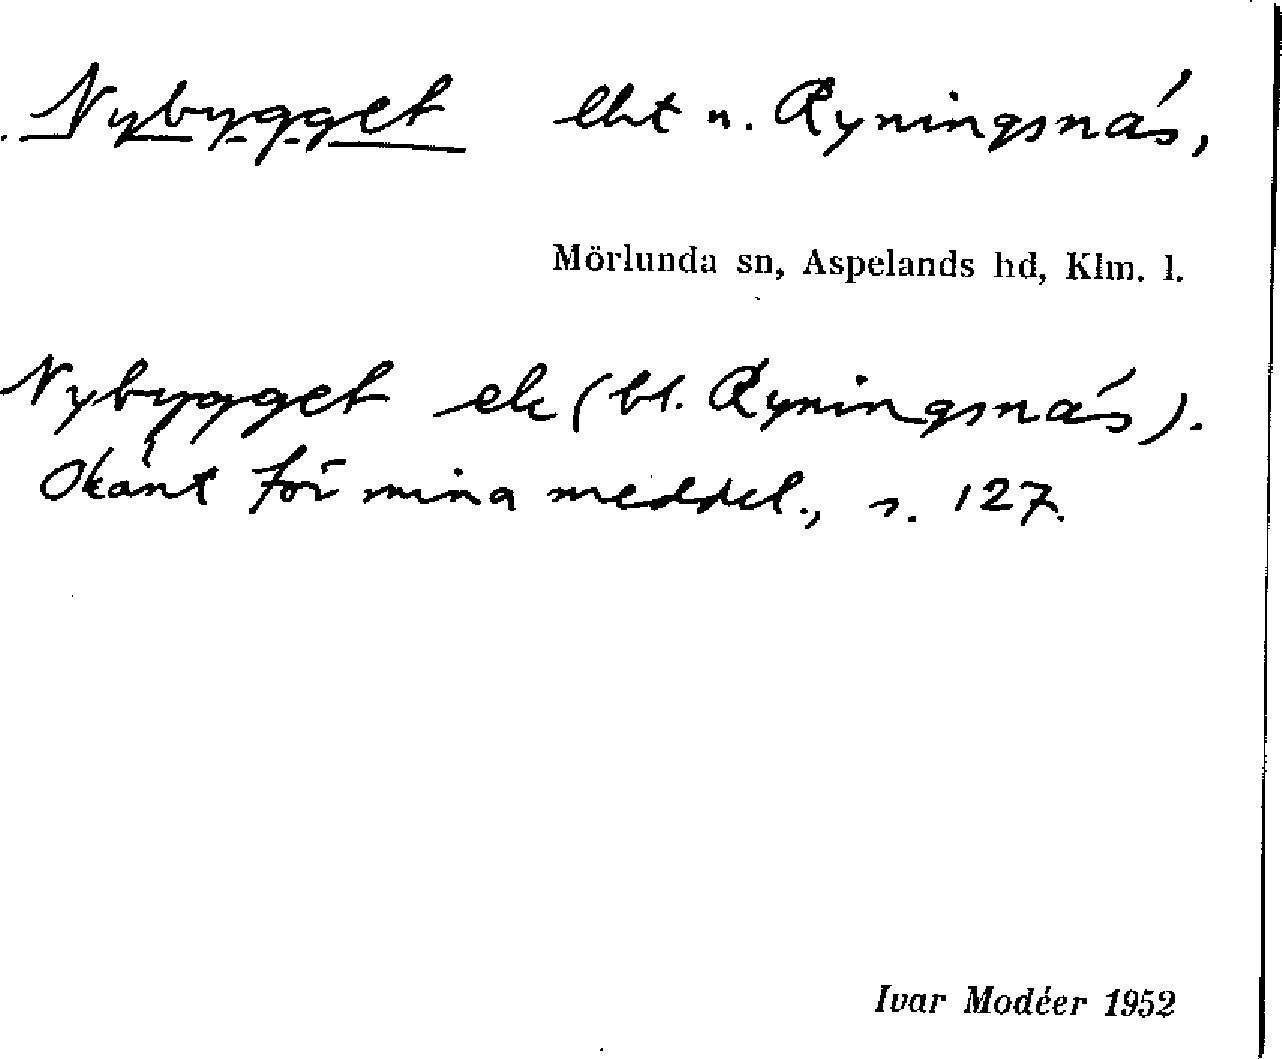 Nybygget lht u. Ryningsnäs,
Mörlunda sn, Aspelands hd, Klm. l.
Nybygget ek (bl. Ryningsnäs).
Okänt för mina meddel., s. 127.
Ivar Modéer 1952